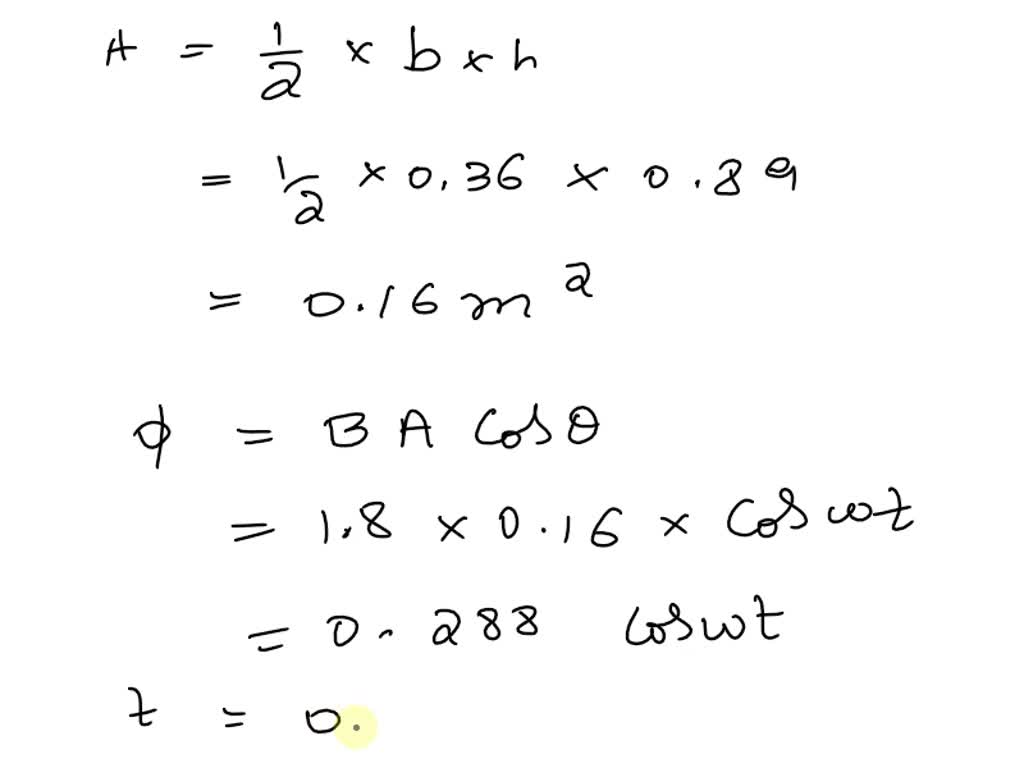 A = 1/2 × b × h
= 1/2 × 0.36 × 0.89
= 0.16 m²
φ = B A Cos θ
= 1.8 × 0.16 × Cos ωt
= 0.288 Cos ωt
t = 0.